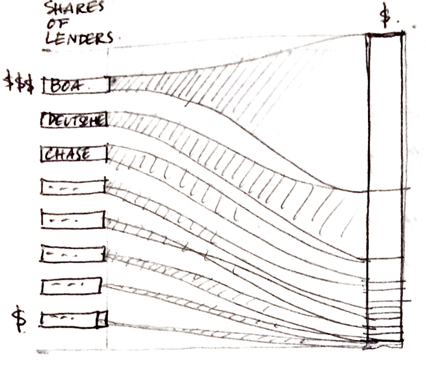 SHARES
OF
LENDERS.
$.
$$$ BOA
DEUTSCHE
CHASE
$